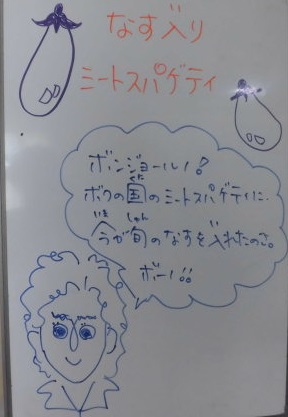 なす入り
ミートスパゲティ
ボンジョールノ!
ボクの国のミートスパゲティに、
くに
今が旬のなすを入れたのさ。
いま しゅん
ボーノ!!